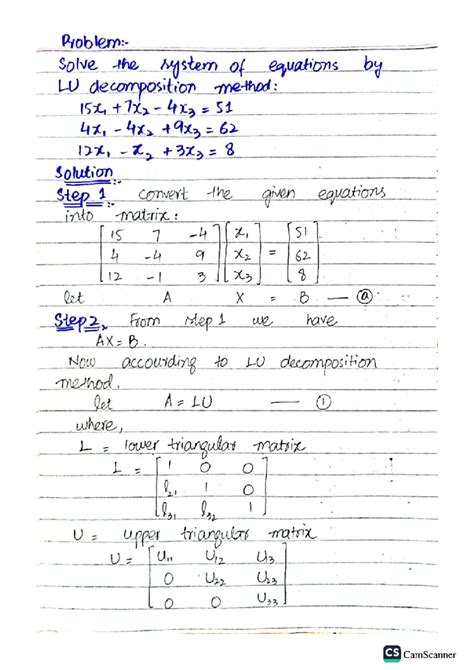 Problem:-
Solve the system of equations by
LU decomposition method:
15x₁ + 7x₂ - 4x₃ = 51
4x₁ - 4x₂ + 9x₃ = 62
12x₁ - x₂ + 3x₃ = 8
Solution:-
Step 1 convert the given equations
into matrix:
[15 7 -4] [x₁] [51]
[4 -4 9] [x₂] = [62]
[12 -1 3] [x₃] [8]
let A X = B — ⓐ
Step 2, From step 1 we have
AX = B.
Now accourding to LU decomposition
method,
let A = LU — ①
where,
L = lower triangular matrix
L = [1 0 0]
[l₂₁ 1 0]
[l₃₁ l₃₂ 1]
U = upper triangular matrix
U = [U₁₁ U₁₂ U₁₃]
[0 U₂₂ U₂₃]
[0 0 U₃₃]
CS CamScanner